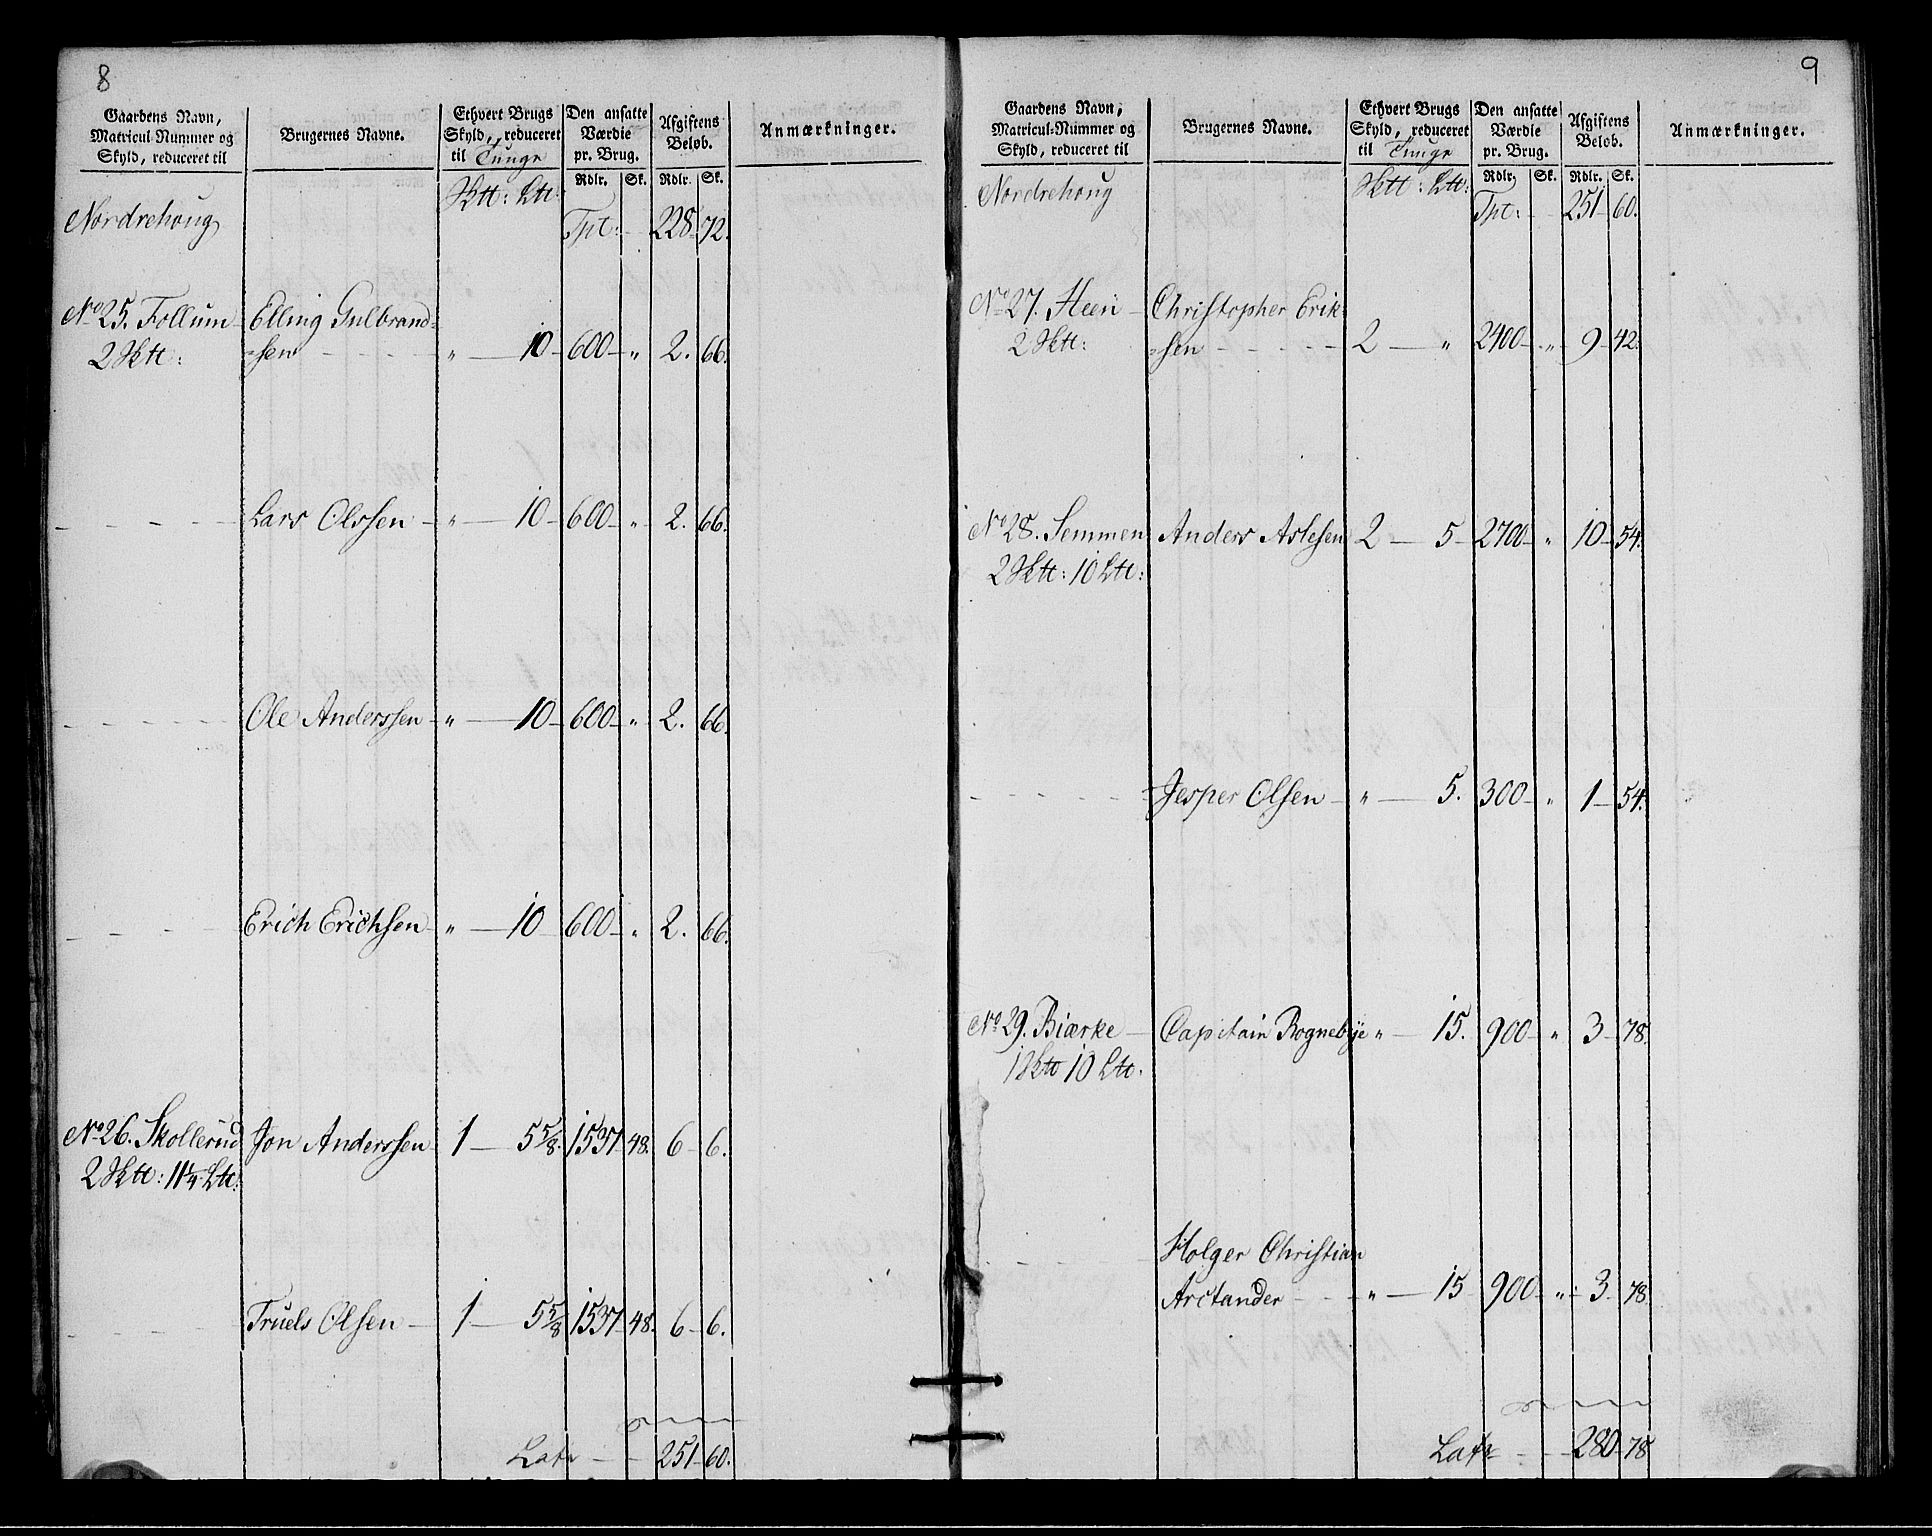 8
Gaardens Navn, Matricul-Nummer og Skyld, reduceret til | Brugernes Navne. | Ethvert Brugs Skyld, reduceret til Tunge | Den ansatte Værdie pr. Brug. | Afgiftens Beløb. | Anmærkninger.
Sktt: Ltt: | Rdlr. | Sk. | Rdlr. | Sk.
Nordrehoug | Tpt: | 228 | 72.
No 25. Follum | Elling Gulbrand=
2 Sktt: | =sen | „ | 10 | 600 | „ | 2. | 66.
Lars Olssen | „ | 10 | 600 | „ | 2. | 66.
Ole Anderssen | „ | 10 | 600 | „ | 2. | 66.
Erich Erichsen | „ | 10 | 600 | „ | 2. | 66.
No 26. Skollerud | Jon Anderssen | 1 | 5 5/8 | 1537 | 48. | 6 | 6.
2 Sktt: 11 1/4 Ltt:
Truels Olsen | 1 | 5 5/8 | 1537 | 48. | 6 | 6.
Latr | 251 | 60.
9
Gaardens Navn, Matricul-Nummer og Skyld, reduceret til | Brugernes Navne. | Ethvert Brugs Skyld, reduceret til Tunge | Den ansatte Værdie pr. Brug. | Afgiftens Beløb. | Anmærkninger.
Sktt: Ltt: | Rdlr. | Sk. | Rdlr. | Sk.
Nordrehoug | Tpt: | 251 | 60.
No 27. Heen | Christopher Erik=
2 Sktt: | =sen | 2 | „ | 2400 | „ | 9 | 42.
No 28. Semmen | Anders Aslesen | 2 | 5 | 2700 | „ | 10 | 54.
2 Sktt: 10 Ltt:
Jesper Olsen | „ | 5. | 300 | „ | 1 | 54.
No 29. Biærke | Capitain Rognebye | „ | 15. | 900 | „ | 3 | 78.
1 Sktt 10 Ltt.
Holger Christian
Arctander | „ | 15 | 900 | „ | 3 | 78.
Latr | 280 | 78